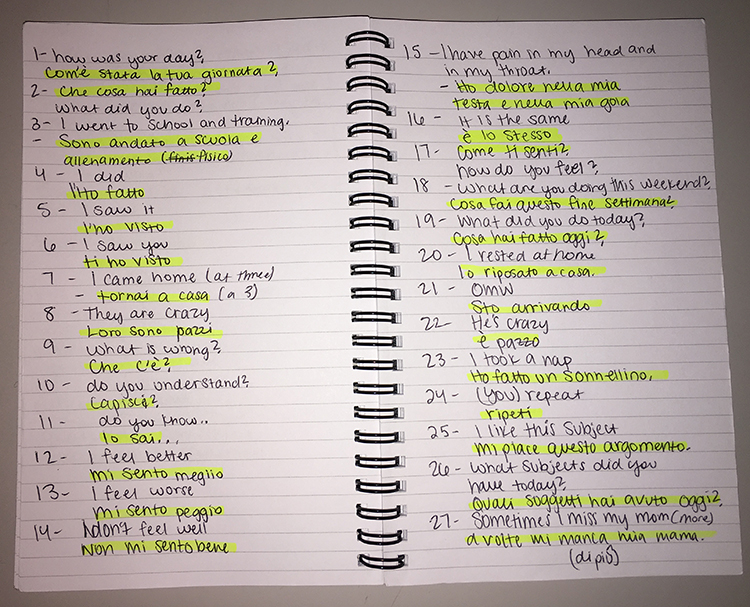 1- how was your day?
Com'è stata la tua giornata?
2- Che cosa hai fatto?
What did you do?
3- I went to School and training.
- Sono andato a scuola e
allenamento (fisico)
4- I did
l'Ho fatto
5- I saw it
l'ho visto
6- I saw you
ti ho visto
7- I came home (at three)
- tornai a casa (a 3)
8- They are crazy
Loro sono pazzi
9- What is wrong?
Che c'è?
10- do you understand?
Capisci?
11- do you know..
lo sai...
12- I feel better
mi sento meglio
13- I feel worse
mi sento peggio
14- I don't feel well
Non mi sento bene
15- I have pain in my head and
in my throat.
- Ho dolore nella mia
testa e nella mia gola
16- It is the same
è lo stesso
17- Come ti senti?
how do you feel?
18- What are you doing this weekend?
Cosa fai questo fine settimana?
19- What did you do today?
Cosa hai fatto oggi?
20- I rested at home
Io riposato a casa.
21- OMW
Sto arrivando
22- He's crazy
è pazzo
23- I took a nap
Ho fatto un sonnellino.
24- (You) repeat
ripeti
25- I like this Subject
mi piace questo argomento.
26- What Subjects did you
have today?
Quali soggetti hai avuto oggi?
27- Sometimes I miss my mom (more)
a volte mi manca mia mama.
(di più)